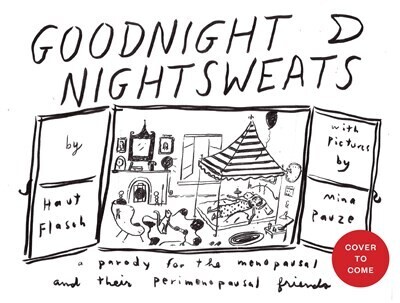 GOODNIGHT
NIGHTSWEATS
by
Haut
Flasch
with
Pictures
by
Mina
Pauze
a parody for the menopausal
and their perimenopausal friends
COVER
TO
COME